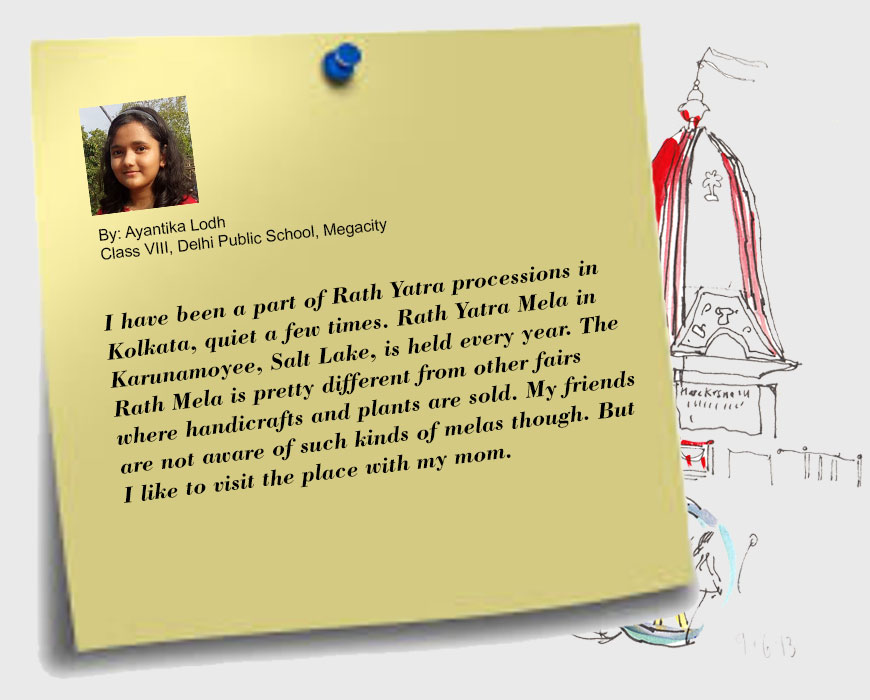 By: Ayantika Lodh
Class VIII, Delhi Public School, Megacity
I have been a part of Rath Yatra processions in
Kolkata, quiet a few times. Rath Yatra Mela in
Karunamoyee, Salt Lake, is held every year. The
Rath Mela is pretty different from other fairs
where handicrafts and plants are sold. My friends
are not aware of such kinds of melas though. But
I like to visit the place with my mom.
9.6.13